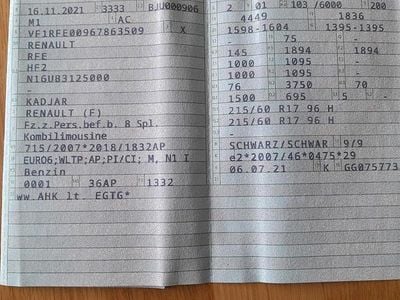 16.11.2021 3333 BJU000906
M1 AC
VF1RFE00967863509 X
RENAULT
RFE
HF2
N1GU83125000
-
KADJAR
RENAULT (F)
Fz.z.Pers.bef.b. 8 Spl.
Kombilimousine
715/2007*2018/1832AP
EURO6;WLTP;AP;PI/CI; M, N1 I
Benzin
0001 36AP 1332
ww.AHK lt. EGTG*
2 01 103 /6000 200
4449 1836
1598-1604 1395-1395
75 -
145 1894 1894
1000 1095 -
1000 1095 -
76 3750 70
1500 695 5 -
215/60 R17 96 H
215/60 R17 96 H
-
SCHWARZ/SCHWAR 9/9
e2*2007/46*0475*29
06.07.21 K GG075773